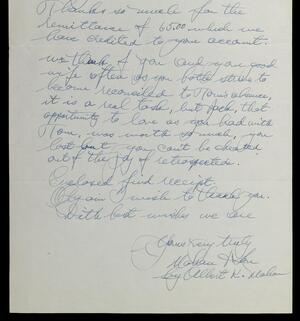 Thanks so much for the
remittance of 65.00 which we
have credited to your account.
We think of you and your good
wife often as you both strive to
become reconciled to Mom's absence,
it is a real task, but Jack, that
opportunity to love as you had with
Mom, was worth so much, you
lost but you can't be cheated
out of the joy of retrospected.
Enclosed find receipt.
Again I wish to thank you.
With best wishes we are
Yours very truly
& Son
by Albert K.